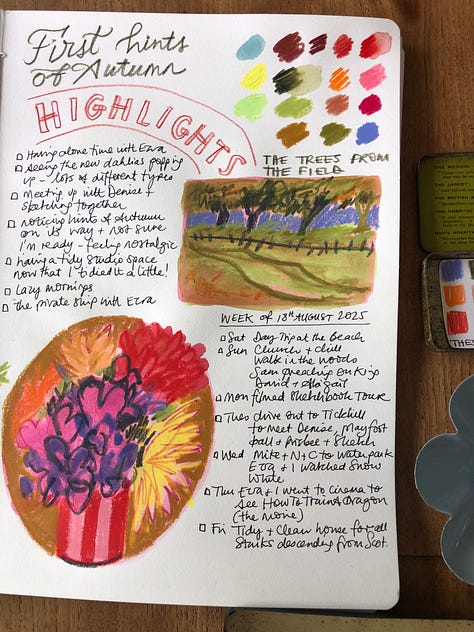 First hints
of Autumn
HIGHLIGHTS
Having alone time with Ezra
Seeing the new dahlias popping
up - lots of different types
Meeting up with Denise +
sketching together
noticing hints of Autumn
on its way + not sure
I'm ready - feeling nostalgic
Having a tidy studio space
now that I tidied it a little!
Lazy mornings
The private ship with Ezra
THE TREES FROM
THE FIELD
WEEK OF 18TH AUGUST 2025
Sat Day Trip at the Beach
Sun Church + chill
walk in the woods
Sam preaching on King
David + Abigail
Mon filmed Sketchbook Tour
Tues drive out to Tickhill
to meet Denise, Mayfest
ball + frisbee + sketch
Wed Mike + N + C to waterpark
Ezra + I watched Snow
White
Thu Ezra + I went to cinema to
see How To Train A Dragon
(the movie)
Fri Tidy + Clean house for all
Starks descending from Scot.
THE MEDICAL
THE LANCET
THE BRITISH
THE HOSPITAL
GUY'S HOSPITAL
THES